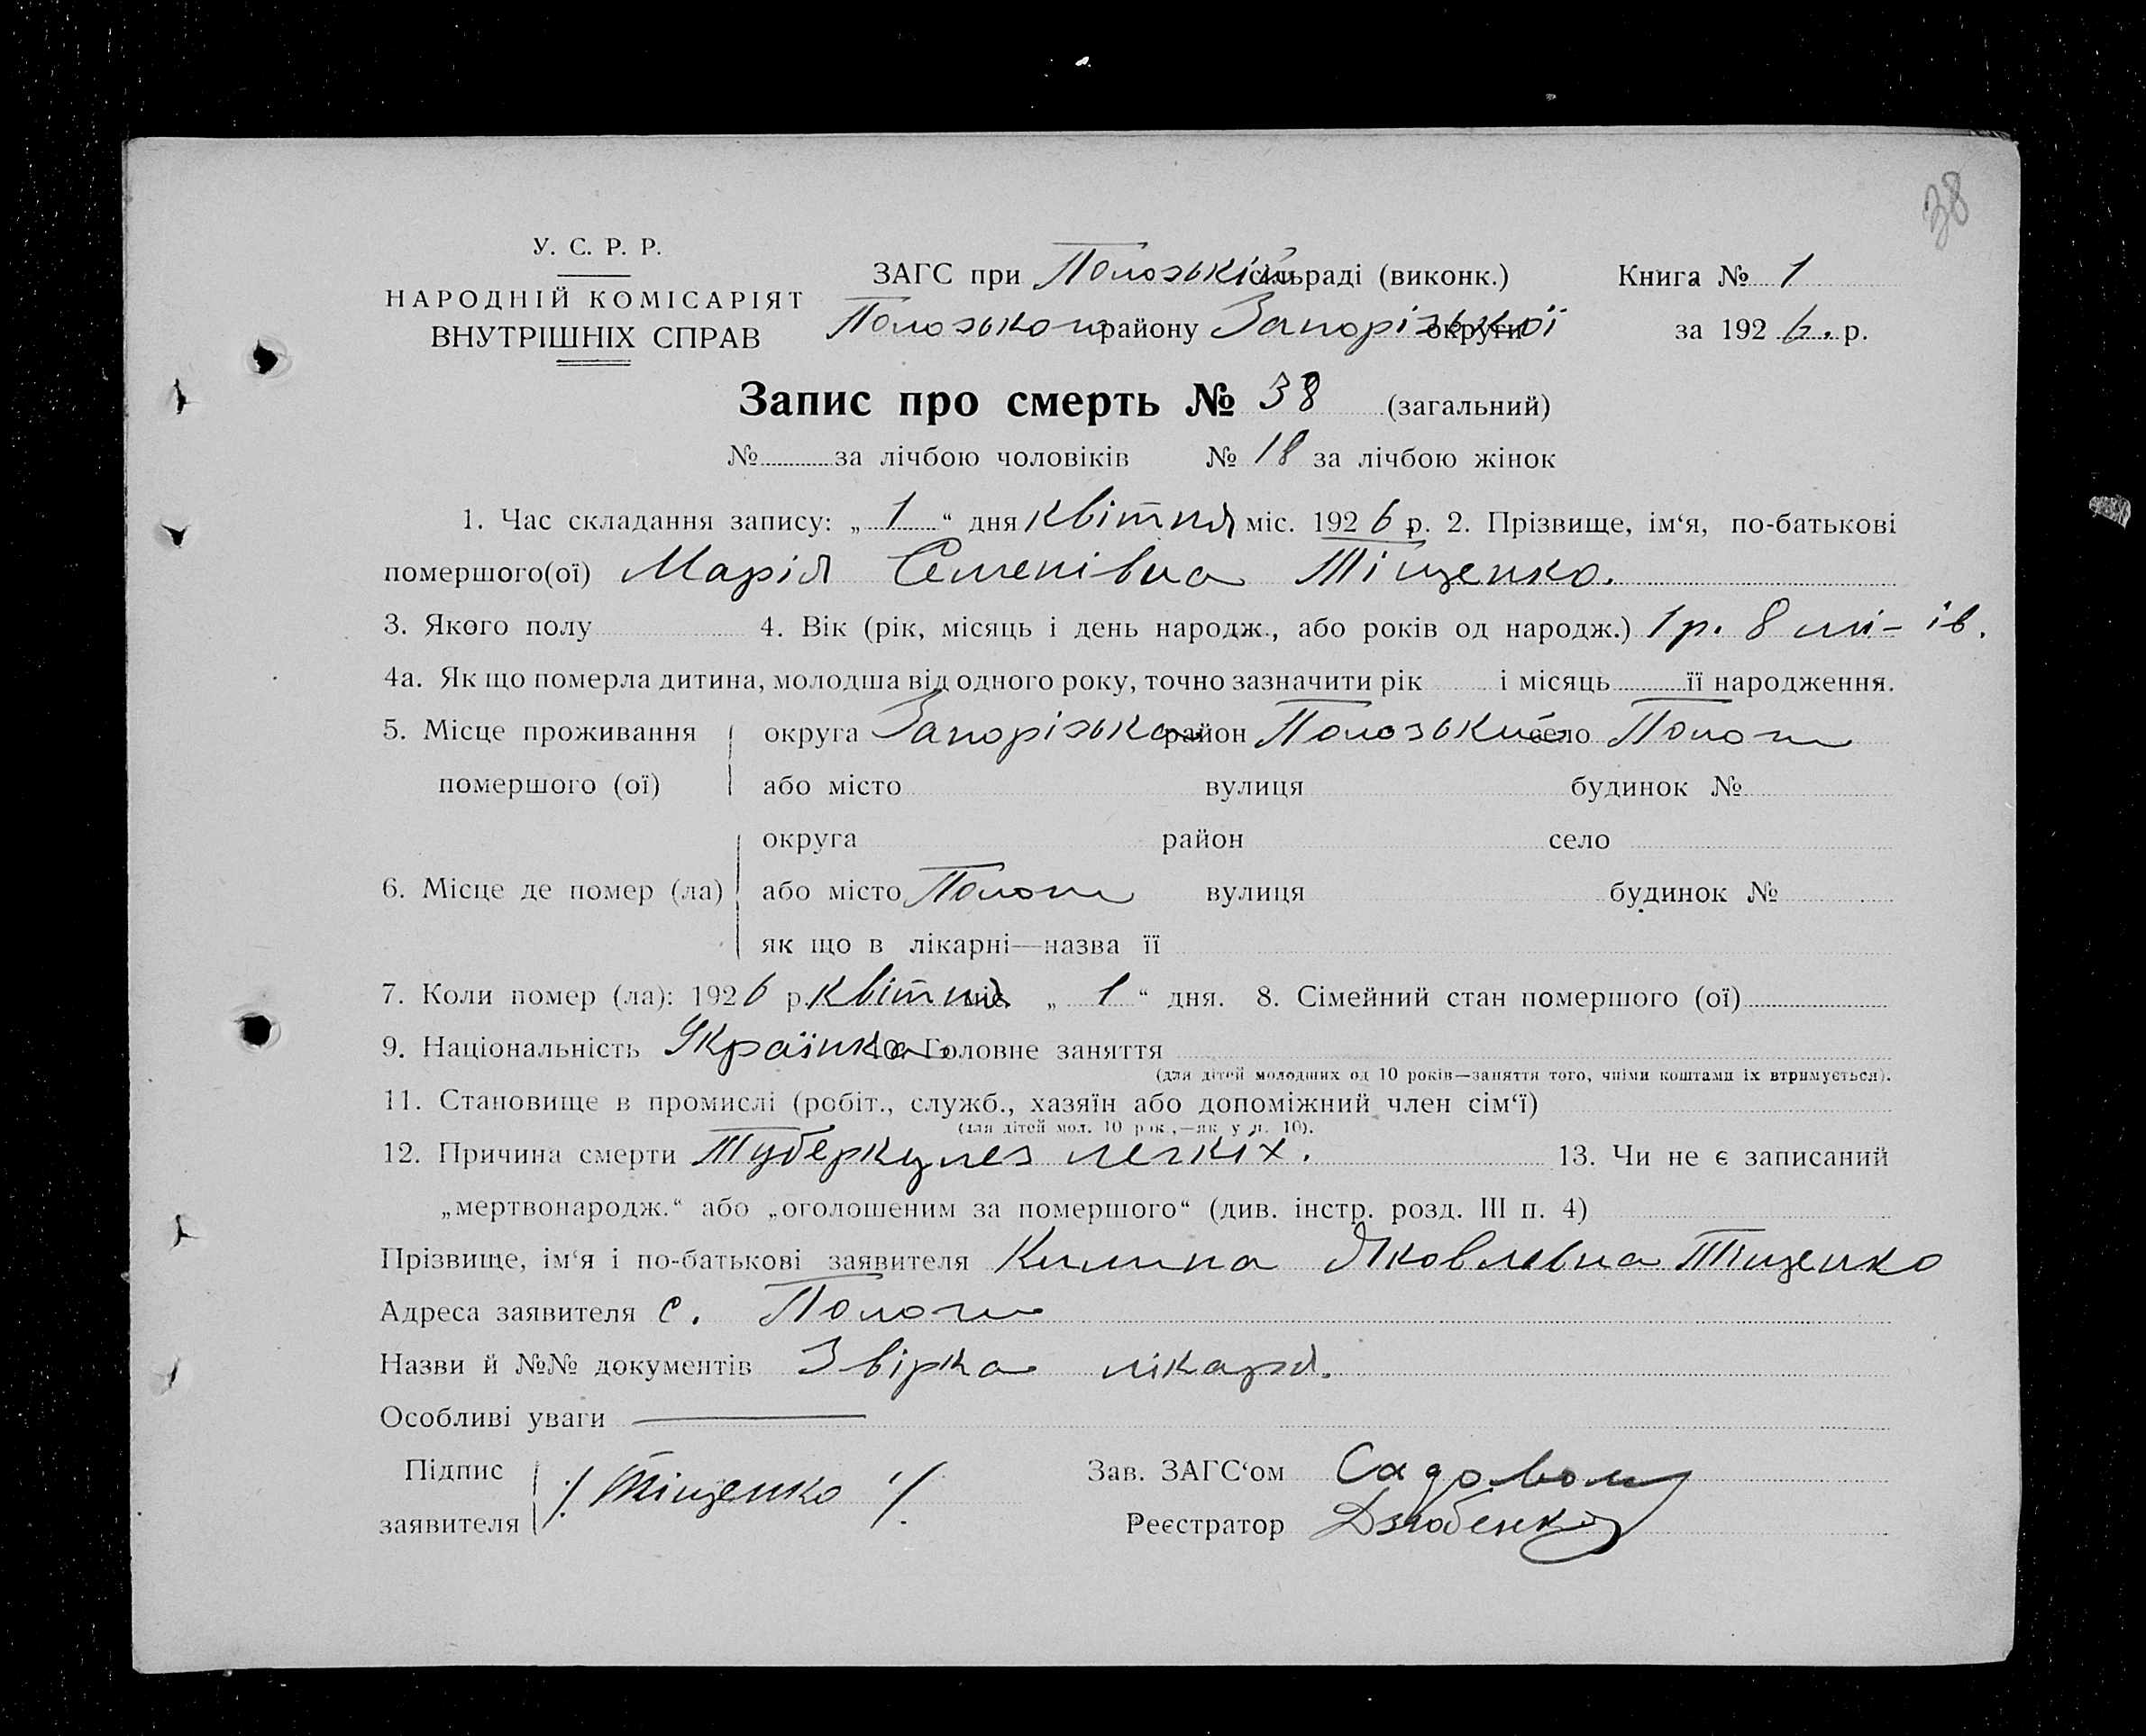 38
У. С. Р. Р.
НАРОДНІЙ КОМІСАРІЯТ
ВНУТРІШНІХ СПРАВ
ЗАГС при Полозькій сільраді (виконк.) Книга № 1
Полозького району Запорізької округи за 1926. р.
Запис про смерть № 38 (загальний)
№ за лічбою чоловіків № 18 за лічбою жінок
1. Час складання запису: „ 1 “ дня квітня міс. 1926 р. 2. Прізвище, ім‘я, по-батькові
помершого(ої) Марія Семенівна Тіщенко.
3. Якого полу 4. Вік (рік, місяць і день народж., або років од народж.) 1 р. 8 мі-ів.
4а. Як що померла дитина, молодша від одного року, точно зазначити рік і місяць її народження.
5. Місце проживання округа Запорізька район Полозький село Пологи
помершого (ої) або місто вулиця будинок №
округа район село
6. Місце де помер (ла) або місто Пологи вулиця будинок №
як що в лікарні—назва її
7. Коли помер (ла): 1926 р. квітня міс. „ 1 “ дня. 8. Сімейний стан помершого (ої)
9. Національність Українка 10. Головне заняття
(для дітей молодших од 10 років—заняття того, чиїми коштами їх втримується).
11. Становище в промислі (робіт., служб., хазяїн або допоміжний член сім‘ї)
(для дітей мол. 10 рок.,—як у п. 10).
12. Причина смерти Туберкулез легкіх. 13. Чи не є записаний
„мертвонародж.“ або „оголошеним за помершого“ (див. інстр. розд. III п. 4)
Прізвище, ім‘я і по-батькові заявителя Килина Яковлевна Тіщенко
Адреса заявителя с. Пологи
Назви й №№ документів Звірка лікаря.
Особливі уваги
Підпис заявителя /Тіщенко/ Зав. ЗАГС‘ом
Реєстратор Дзюбенко